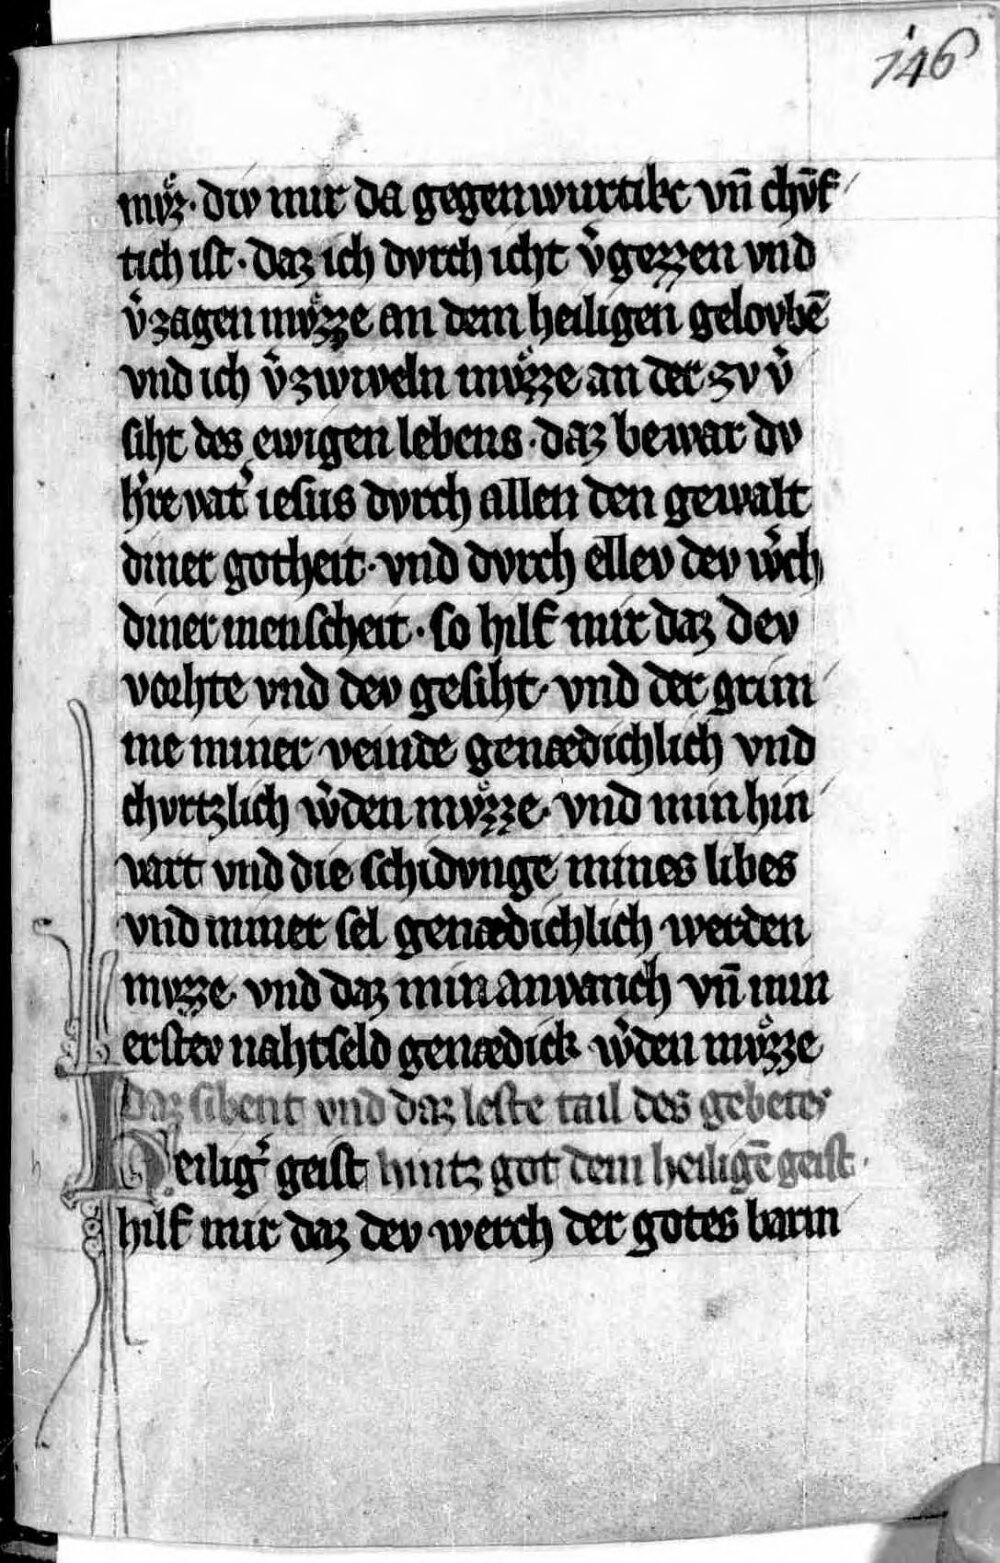 146
mvͦz · div mir da gegenwurtikc vn̄ chv̄f
tich ist · daz ich dvrch icht v̓gezzen vnd
v̓zagen mvͦzze an dem heiligen gelovbē
vnd ich v̓zwiveln mvͦzze an der zv v̓
siht des ewigen lebens · daz bewar dv
h̓re vat̓ iesus dvrch allen den gewalt
diner gotheit · vnd dvrch ellev dev w̓ch
diner menscheit · so hilf mir daz dev
vorhte vnd dev gesiht · vnd der grim
me miner veinde genædichlich vnd
chvrtzlich w̓den mvͦzze · vnd min hin
vart vnd die schidvnge mines libes
vnd miner sel genædichlich werden
mvzze · vnd daz min anvanch vn̄ min
erstev nahtseld genædick w̓den mvͦzze
Daz sibent vnd daz leste tail des gebetes
Heilig̓ geist hintz got dem heiligē geist ·
hilf mir daz dev werch der gotes barm